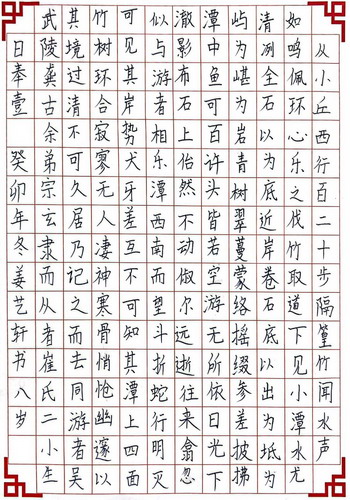 从小丘西行百二十步隔篁竹闻水声
如鸣佩环心乐之伐竹取道下见小潭水尤
清冽全石以为底近岸卷石底以出为坻为
屿为嵁为岩青树翠蔓蒙络摇缀参差披拂
潭中鱼可百许头皆若空游无所依日光下
澈影布石上佁然不动俶尔远逝往来翕忽
似与游者相乐潭西南而望斗折蛇行明灭
可见其岸势犬牙差互不可知其潭上四面
竹树环合寂寥无人凄神寒骨悄怆幽邃以
其境过清不可久居乃记之而去同游者吴
武陵龚古余弟宗玄隶而从者崔氏二小生
日奉壹 癸卯年冬姜艺轩书八岁